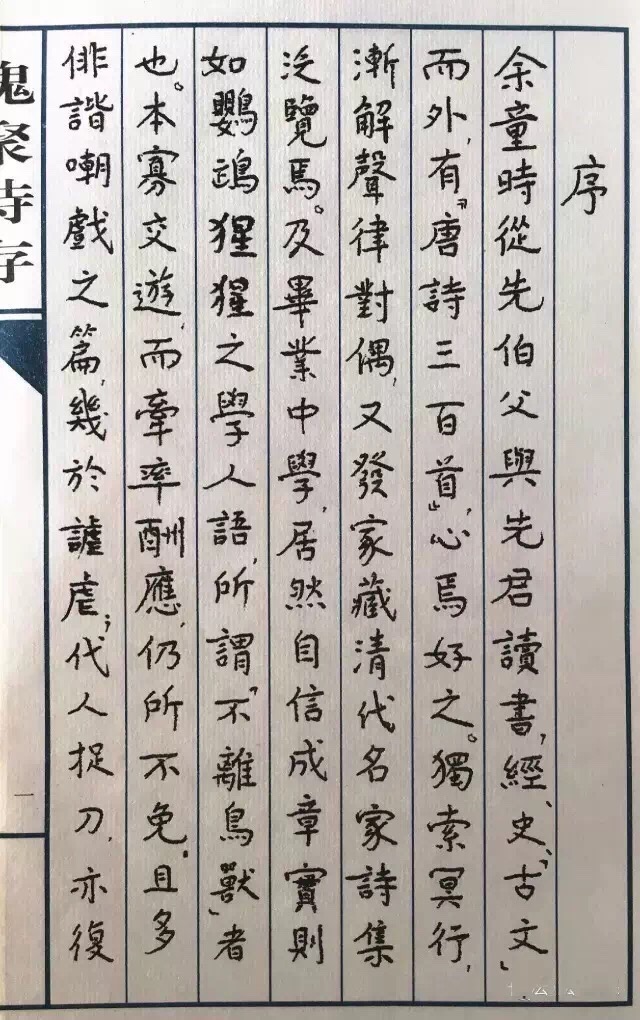 序
余童時從先伯父與先君讀書,經、史、「古文」
而外,有『唐詩三百首』,心焉好之。獨索冥行,
漸解聲律對偶,又發家藏清代名家詩集
泛覽焉。及畢業中學,居然自信成章,實則
如鸚鵡猩猩之學人語,所謂「不離鳥獸」者
也。本寡交遊,而牽率酬應,仍所不免。且多
俳諧嘲戲之篇,幾於謔虐;代人捉刀,亦復
槐聚詩存
一